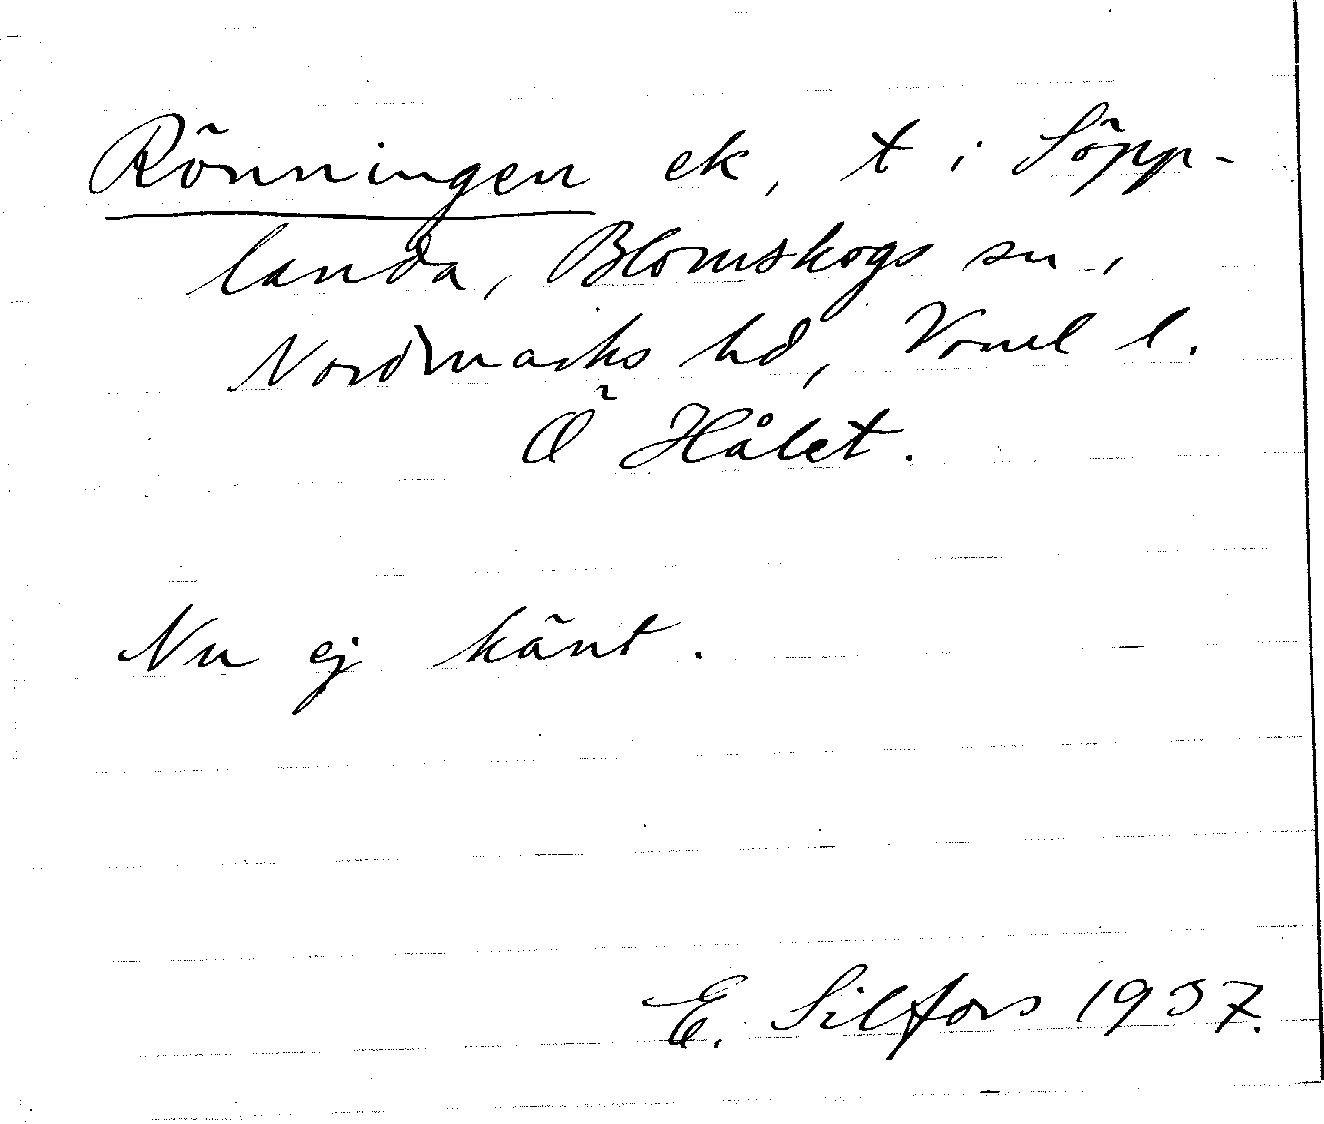 Rönningen ek, t i Söpp-
landa, Blomskogs sn,
Nordmarks hd, Vrml l.
Ö Hålet.
Nu ej känt.
E. Silfors 1937.